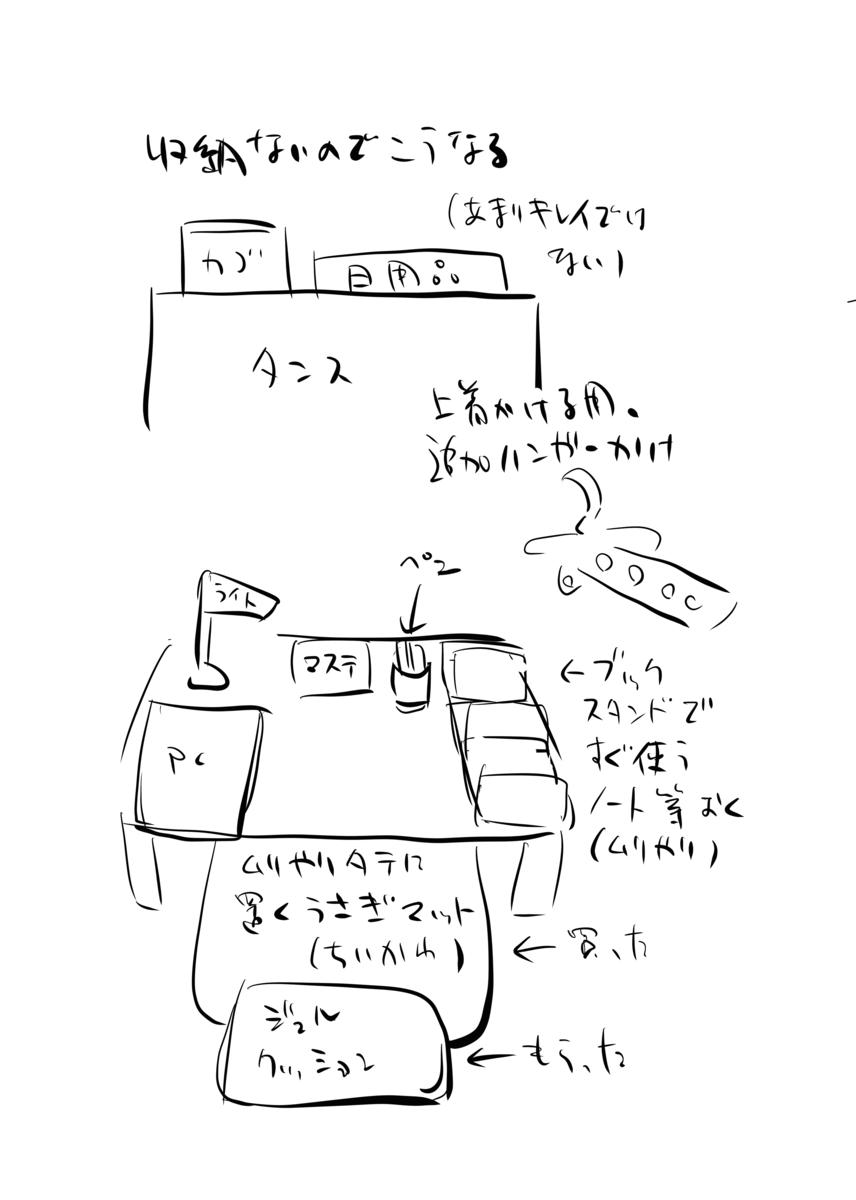 収納ないのでこうなる
(あまりキレイでは
ない)
カゴ
日用品
タンス
上着かける用。
追加ハンガーかけ
ペン
ライト
マステ
PC
←ブック
スタンドで
すぐ使う
ノート等おく
(ムリやり)
ムリやりタテに
置くうさぎマット
(ちいかわ)
←買った
ジェル
クッション
←もらった